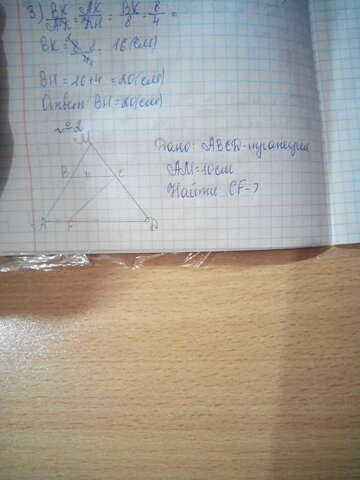 3) BK/AK = AK/KH = BK/8 = 8/4 =
BK = 8·8/4 = 16 (см)
BH = 16+4 = 20 (см)
Ответ: BH = 20 (см)
№2
M
Дано: ABCD - трапеция
B K C
AM = 10 см
Найти CF - ?
A F D